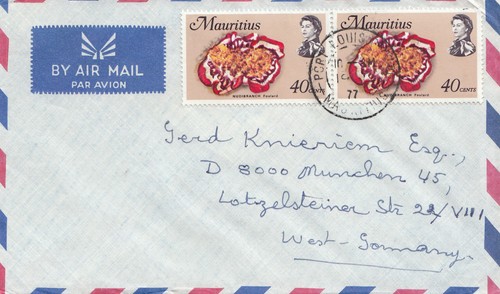 Mauritius
Mauritius
BY AIR MAIL
PAR AVION
NUDIBRANCH
40 CENTS
NUDIBRANCH
40 CENTS
PORT LOUIS
77
MAURITIUS
Gerd Knieriem Esq.,
D 8000 Munchen 45,
Lotzelsteiner Str 22/VIII
West-Germany.